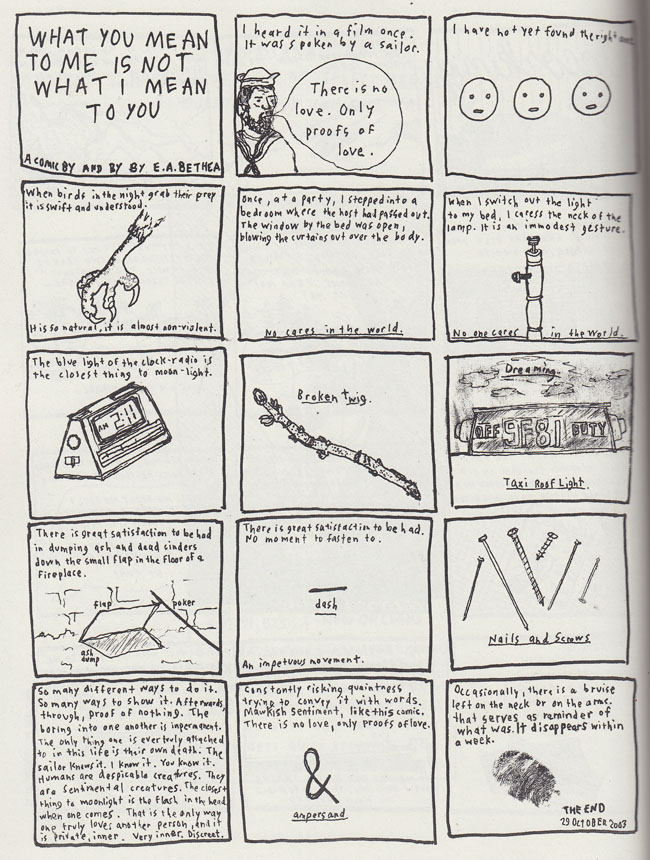 WHAT YOU MEAN
TO ME IS NOT
WHAT I MEAN
TO YOU
A COMIC BY AND BY BY E.A. BETHEA
I heard it in a film once.
It was spoken by a sailor.
There is no
love. Only
proofs of
love.
I have not yet found the right
When birds in the night grab their prey
it is swift and understood.
It is so natural, it is almost non-violent.
Once, at a party, I stepped into a
bedroom where the host had passed out.
The window by the bed was open,
blowing the curtains out over the body.
No cares in the world.
When I switch out the light
to my bed, I caress the neck of the
lamp. It is an immodest gesture.
No one cares in the world.
The blue light of the clock-radio is
the closest thing to moon-light.
AM 2:11
Broken twig.
Dreaming.
OFF 9F81 DUTY
Taxi Roof Light.
There is great satisfaction to be had
in dumping ash and dead cinders
down the small flap in the floor of a
fireplace.
flap
poker
ash
dump
There is great satisfaction to be had.
NO moment to fasten to.
dash
An impetuous movement.
Nails and Screws
So many different ways to do it.
So many ways to show it. Afterwards,
through, proof of nothing. The
boring into one another is impermanent.
The only thing one is ever truly attached
to in this life is their own death. The
sailor knows it. I know it. You know it.
Humans are despicable creatures. They
are sentimental creatures. The closest
thing to moonlight is the flash in the head
when one comes. That is the only way
one truly loves another person, and it
is private, inner. Very inner. Discreet.
Constantly risking quaintness
trying to convey it with words.
Mawkish sentiment, like this comic.
There is no love, only proofs of love.
&
ampersand.
Occasionally, there is a bruise
left on the neck or on the arms.
that serves as reminder of
what was. It disappears within
a week.
THE END
29 OCTOBER 2003